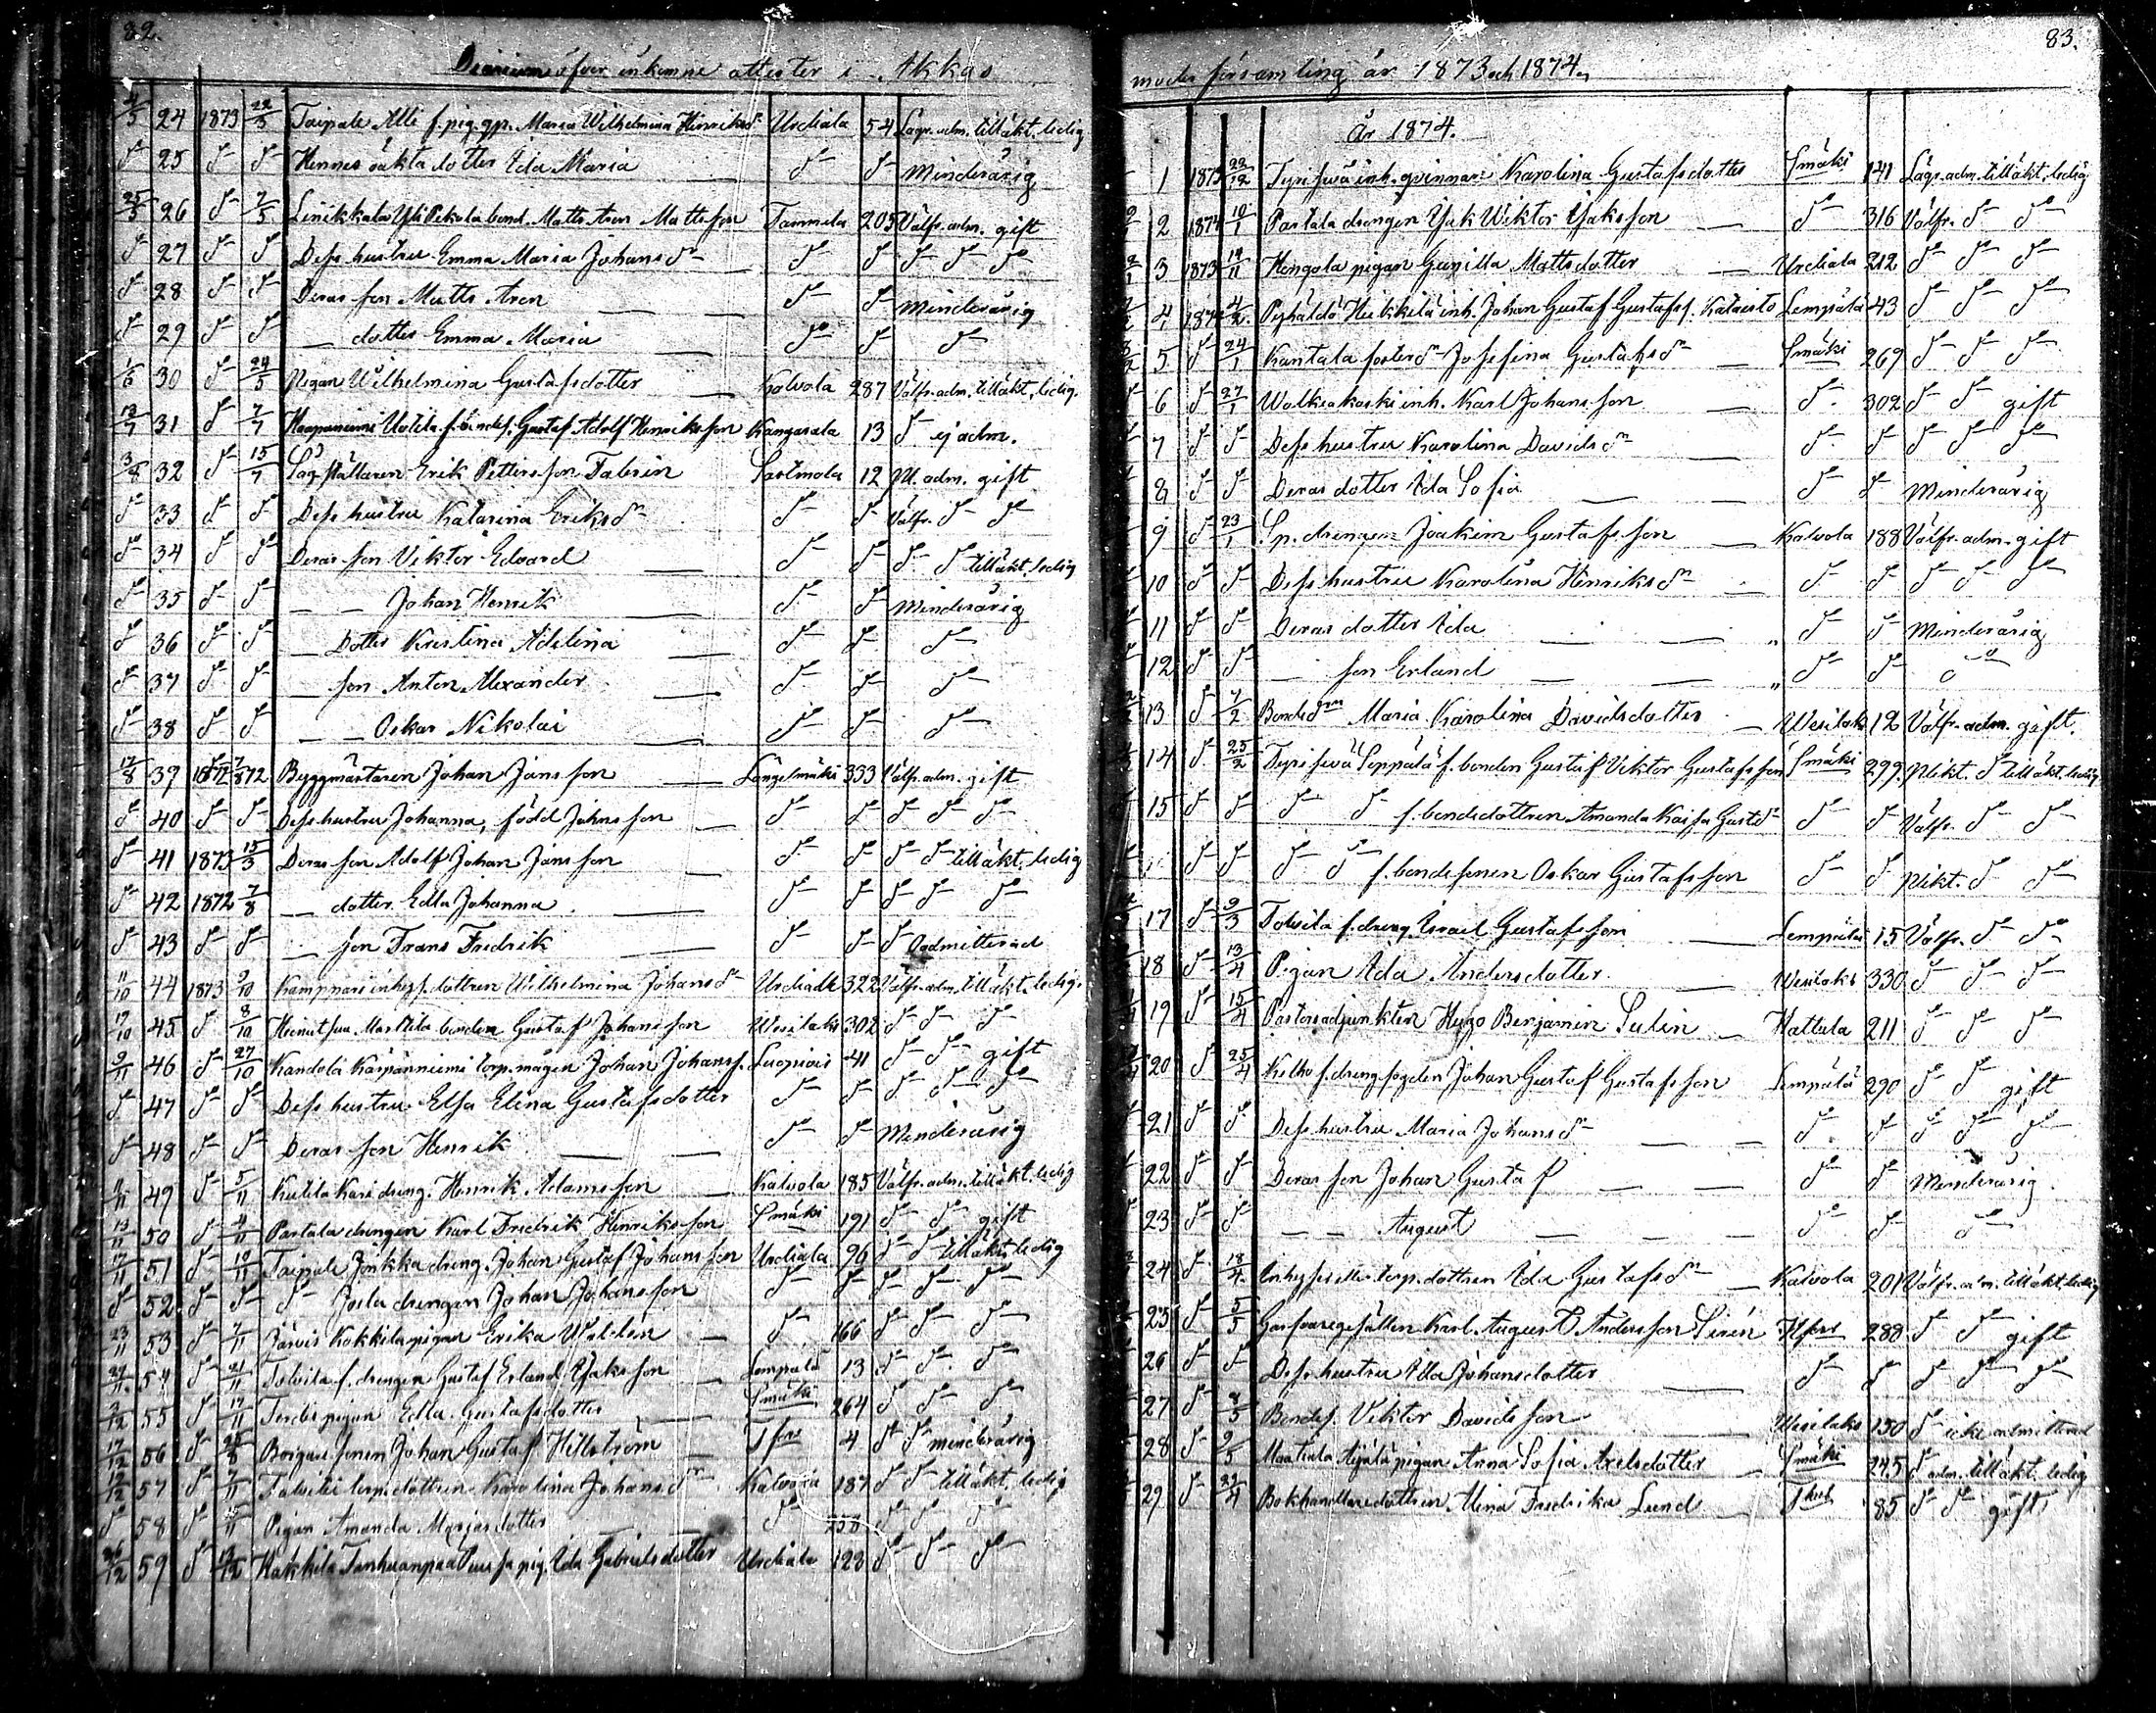 82.
Diarium öfver inkomne attester i Akkas
24 1873 22/5 Taipale Alli f. pig. gp. Maria Wilhelmina Henriksd:r Urdiala 54 Lägr. adm. till äkt. ledig
d:o 25 d:o d:o Hennes oäkta dotter Ida Maria d:o d:o Minderårig
25/5 26 d:o 7/5 Yli Pekola bond. Matts Mattsson Tammela 205 Välfr. adm. gift
d:o 27 d:o d:o Dess hustru Emma Maria Johansd:r d:o d:o d:o d:o d:o
d:o 28 d:o d:o Deras son Matts d:o d:o Minderårig
d:o 29 d:o d:o — dotter Emma Maria d:o d:o d:o
30 d:o 24/5 Pigan Wilhelmina Gustafsdotter Kalvola 287 Välfr. adm. till äkt. ledig.
13/7 31 d:o 7/7 Gustaf Adolf Henriksson Kangasala 13 d:o ej adm.
3/8 32 d:o 15/7 Erik Pettersson Sastmola 12 adm. gift
d:o 33 d:o d:o Dess hustru Katarina Eriksd:r d:o d:o Välfr. d:o d:o
d:o 34 d:o d:o Deras son Viktor Edvard d:o d:o d:o d:o till äkt. ledig
d:o 35 d:o d:o — — Johan Henrik d:o d:o Minderårig
d:o 36 d:o d:o — Dotter Kristina Adelina d:o d:o d:o
d:o 37 d:o d:o — son Anton Alexander d:o d:o d:o
d:o 38 d:o d:o — — Oskar Nikolai d:o d:o d:o
17/8 39 1872 Byggmästaren Johan Jansson Längelmäki 333 Välfr. adm. gift
d:o 40 d:o d:o Dess hustru Johanna, född Johnsson d:o d:o d:o d:o d:o
d:o 41 1873 15/3 Deras son Adolf Johan Jansson d:o d:o d:o d:o till äkt. ledig
d:o 42 1872 7/8 — dotter Edla Johanna d:o d:o d:o d:o d:o
d:o 43 d:o d:o — son Frans Fredrik d:o d:o d:o Oadmitterad
11/10 44 1873 9/10 dottren Wilhelmina Johansd:r Urdiala 322 Välfr. adm. till äkt. ledig.
19/10 45 d:o 8/10 Marttila bonden Gustaf Johansson Wesilaks 302 d:o d:o d:o
9/11 46 d:o 27/10 Kärpänniemi torp. mågen Johan Johanss. Luopiois 41 d:o d:o gift
d:o 47 d:o d:o Dess hustru Elsa Elina Gustafsdotter d:o d:o d:o d:o d:o
d:o 48 d:o d:o Deras son Henrik d:o d:o Minderårig
11/11 49 d:o 5/11 Kutila Kari dreng. Henrik Adamsson Kalvola 185 Välfr. adm. till äkt. ledig
13/11 50 d:o 4/11 Partala drengen Karl Fredrik Henriksson Smäki 191 d:o d:o gift
17/11 51 d:o 10/11 Taipale Jönkka dreng. Johan Gustaf Johansson Urdiala 96 d:o d:o till äkt. ledig
d:o 52 d:o d:o d:o drengen Johan Johansson d:o d:o d:o d:o d:o
23/11 53 d:o 7/11 Kokkila pigan Erika Waldén d:o 166 d:o d:o d:o
54 d:o 21/11 Tolvila f. drengen Gustaf Erland Isaksson Lempälä 13 d:o d:o d:o
2/12 55 d:o 17/11 pigan Edla Gustafsdotter Smäki 264 d:o d:o d:o
17/12 56 d:o Borgaresonen Johan Gustaf Hellström Tfors 4 d:o d:o minderårig
57 d:o 7/11 torp. dottren Karolina Johansd:r Kalvola 187 d:o d:o till äkt. ledig
d:o 58 d:o Pigan Amanda d:o 258 d:o d:o d:o
59 d:o Kakkila pig. Ida Gabrielsdotter Urdiala 123 d:o d:o d:o
83.
moder församling år 1873 och 1874.
År 1874.
1 1873 22/12 inh. qvinnan Karolina Gustafsdotter Smäki 141 Lägr. adm. till äkt. ledig
2 1874 10/1 Partala drengen Isak Wiktor Isaksson d:o 316 Välfr. d:o d:o
3 1873 19/11 Hongola pigan Gunilla Mattsdotter Urdiala 212 d:o d:o d:o
4 1874 4/2 Heikkilä inh. Johan Gustaf Gustafss. Lempälä 43 d:o d:o d:o
5 d:o 24/1 Kantala Josefina Gustafsd:r Smäki 269 d:o d:o d:o
6 d:o 27/1 Walkiakoski inh. Karl Johansson d:o 302 d:o d:o gift
7 d:o d:o Dess hustru Karolina Davidsd:r d:o d:o d:o d:o d:o
8 d:o d:o Deras dotter Ida Sofia d:o d:o Minderårig
9 d:o 23/1 Sp. drengen Joakim Gustafsson Kalvola 188 Välfr. adm. gift
10 d:o d:o Dess hustru Karolina Henriksd:r d:o d:o d:o d:o d:o
11 d:o d:o Deras dotter Ida d:o d:o Minderårig
12 d:o d:o — son Erland d:o d:o d:o
13 d:o 7/2 Maria Karolina Davidsdotter Wesilaks 12 Välfr. adm. gift.
14 d:o 25/2 Seppälä f. bonden Gustaf Viktor Gustafsson Smäki 299 Nikt. d:o till äkt. ledig
15 d:o d:o d:o d:o f. bondedottren Amanda Kajsa Gustd:r d:o d:o Välfr. d:o d:o
d:o d:o d:o d:o f. bondesonen Oskar Gustafsson d:o d:o Nikt. d:o d:o
17 d:o 9/3 Tolvila f. dreng. Israel Gustafsson Lempälä 15 Välfr. d:o d:o
18 d:o 13/4 Pigan Ida Andersdotter Wesilaks 330 d:o d:o d:o
19 d:o 15/4 Pastorsadjunkten Hugo Benjamin Sulin Hattula 211 d:o d:o d:o
20 d:o 25/4 f. drengfogden Johan Gustaf Gustafsson Lempälä 290 d:o d:o gift
21 d:o d:o Dess hustru Maria Johansd:r d:o d:o d:o d:o d:o
22 d:o d:o Deras son Johan Gustaf d:o d:o Minderårig.
23 d:o d:o — — August d:o d:o d:o
24 d:o 18/4 torp. dottren Ida Gustafsd:r Kalvola 201 Välfr. adm. till äkt. ledig
25 d:o 5/5 Garfvaregesällen Karl August Andersson Sirén Hfors 288 d:o d:o gift
26 d:o d:o Dess hustru Ida Johansdotter d:o d:o d:o d:o d:o
27 d:o Bondes. Viktor Davidsson Wesilaks 150 d:o icke admitterad
28 d:o 9/5 Maatiala Äijälä pigan Anna Sofia Axelsdotter Smäki 245 d:o adm. till äkt. ledig
29 d:o Bokhandlaredottren Mina Fredrika Lund 85 d:o d:o gift